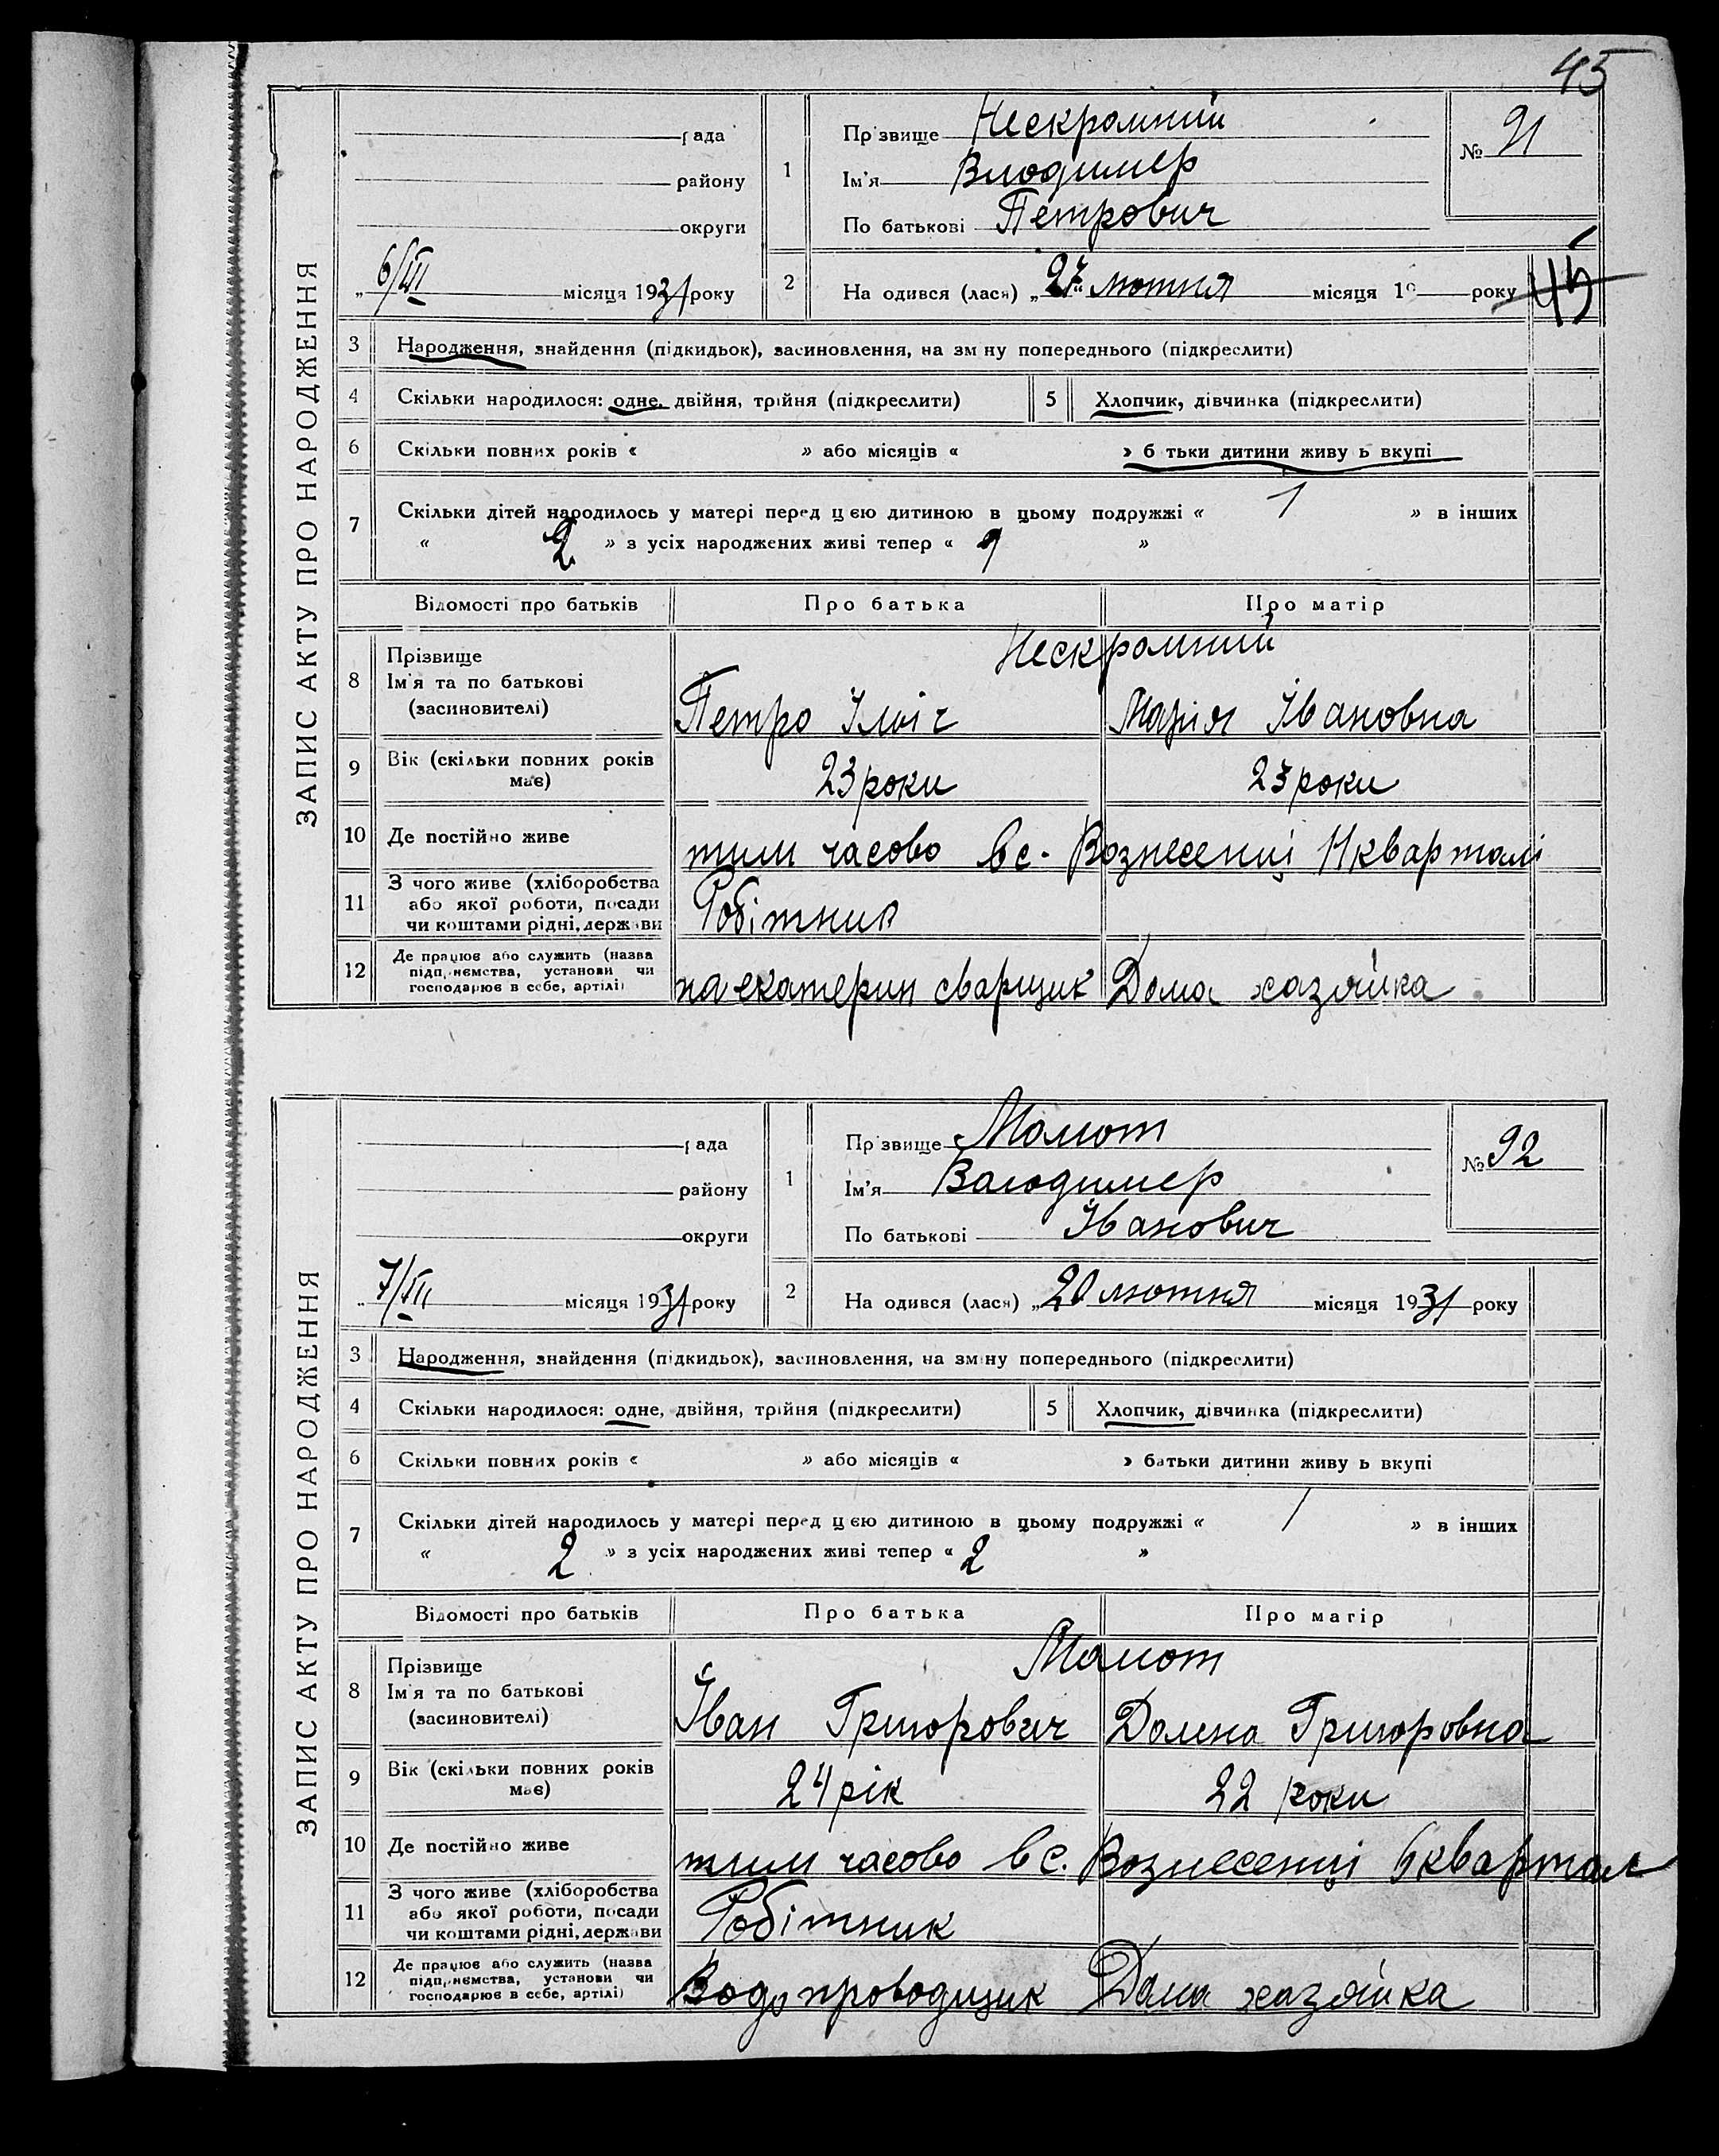 45
ЗАПИС АКТУ ПРО НАРОДЖЕННЯ
рада
району
округи
6/III місяця 1931 року
1
Прізвище Нескромний
Ім'я Влодимер
По батькові Петрович
№ 91
2
На одився (лася) „27" лютня місяця 19 року
45
3 Народження, знайдення (підкидьок), засиновлення, на зм ну попереднього (підкреслити)
4 Скільки народилося: одне, двійня, трійня (підкреслити) 5 Хлопчик, дівчинка (підкреслити)
6 Скільки повних років « » або місяців « » б тьки дитини живу ь вкупі
7 Скільки дітей народилось у матері перед цією дитиною в цьому подружжі « 1 » в інших
« 2 » з усіх народжених живі тепер « »
Відомості про батьків Про батька Про матір
8 Прізвище Нескромний
Ім'я та по батькові
(засиновителі) Петро Ільіч Марія Івановна
9 Вік (скільки повних років
має) 23 роки 23 роки
10 Де постійно живе тим часово в с. Вознесенці 11 кварталі
11 З чого живе (хліборобства
або якої роботи, посади
чи коштами рідні, держави Робітник
12 Де працює або служить (назва
підприємства, установи чи
господарює в себе, артілі) на екатерин сварщик Дома хазяйка
ЗАПИС АКТУ ПРО НАРОДЖЕННЯ
рада
району
округи
„7/III місяця 1931 року
1
Пр звище Мамот
Ім'я Валодимер
По батькові Іванович
№ 92
2
На одився (лася) „20 лютня місяця 1931 року
3 Народження, знайдення (підкидьок), засиновлення, на зміну попереднього (підкреслити)
4 Скільки народилося: одне, двійня, трійня (підкреслити) 5 Хлопчик, дівчинка (підкреслити)
6 Скільки повних років « » або місяців « » батьки дитини живу ь вкупі
7 Скільки дітей народилось у матері перед цією дитиною в цьому подружжі « / » в інших
« 2 » з усіх народжених живі тепер « 2 »
Відомості про батьків Про батька Про матір
8 Прізвище Мамот
Ім'я та по батькові
(засиновителі) Іван Григорович Домна Григоровна
9 Вік (скільки повних років
має) 24 рік 22 роки
10 Де постійно живе тим часово в с. Вознесенці 6 квартал
11 З чого живе (хліборобства
або якої роботи, посади
чи коштами рідні, держави Робітник
12 Де працює або служить (назва
підприємства, установи чи
господарює в себе, артілі) Водопроводщик Дома хазяйка